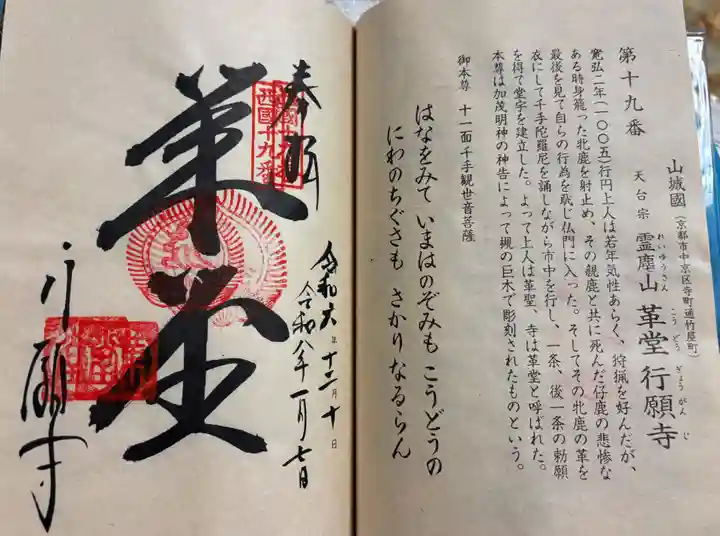 第十九番
山城國（京都市中京区寺町通竹屋町）
天台宗 霊麀山 革堂 行願寺
れいゆうさん こうどう ぎょうがんじ
寛弘二年（一〇〇五）行円上人は若年気性あらく、狩猟を好んだが、
ある時身籠った牝鹿を射止め、その親鹿と共に死んだ仔鹿の悲惨な
最後を見て自らの行為を恥じ仏門に入った。そしてその牝鹿の革を
衣にして千手陀羅尼を誦しながら市中を行し、一条、後一条の勅願
を得て堂宇を建立した。よって上人は革聖、寺は革堂と呼ばれた。
本尊は加茂明神の神告によって槻の巨木で彫刻されたものという。
御本尊 十一面千手観世音菩薩
はなをみて いまはのぞみも こうどうの
にわのちぐさも さかりなるらん
奉拝
西國十九番
革堂
令和六年十二月十日
令和八年一月七日
行願寺